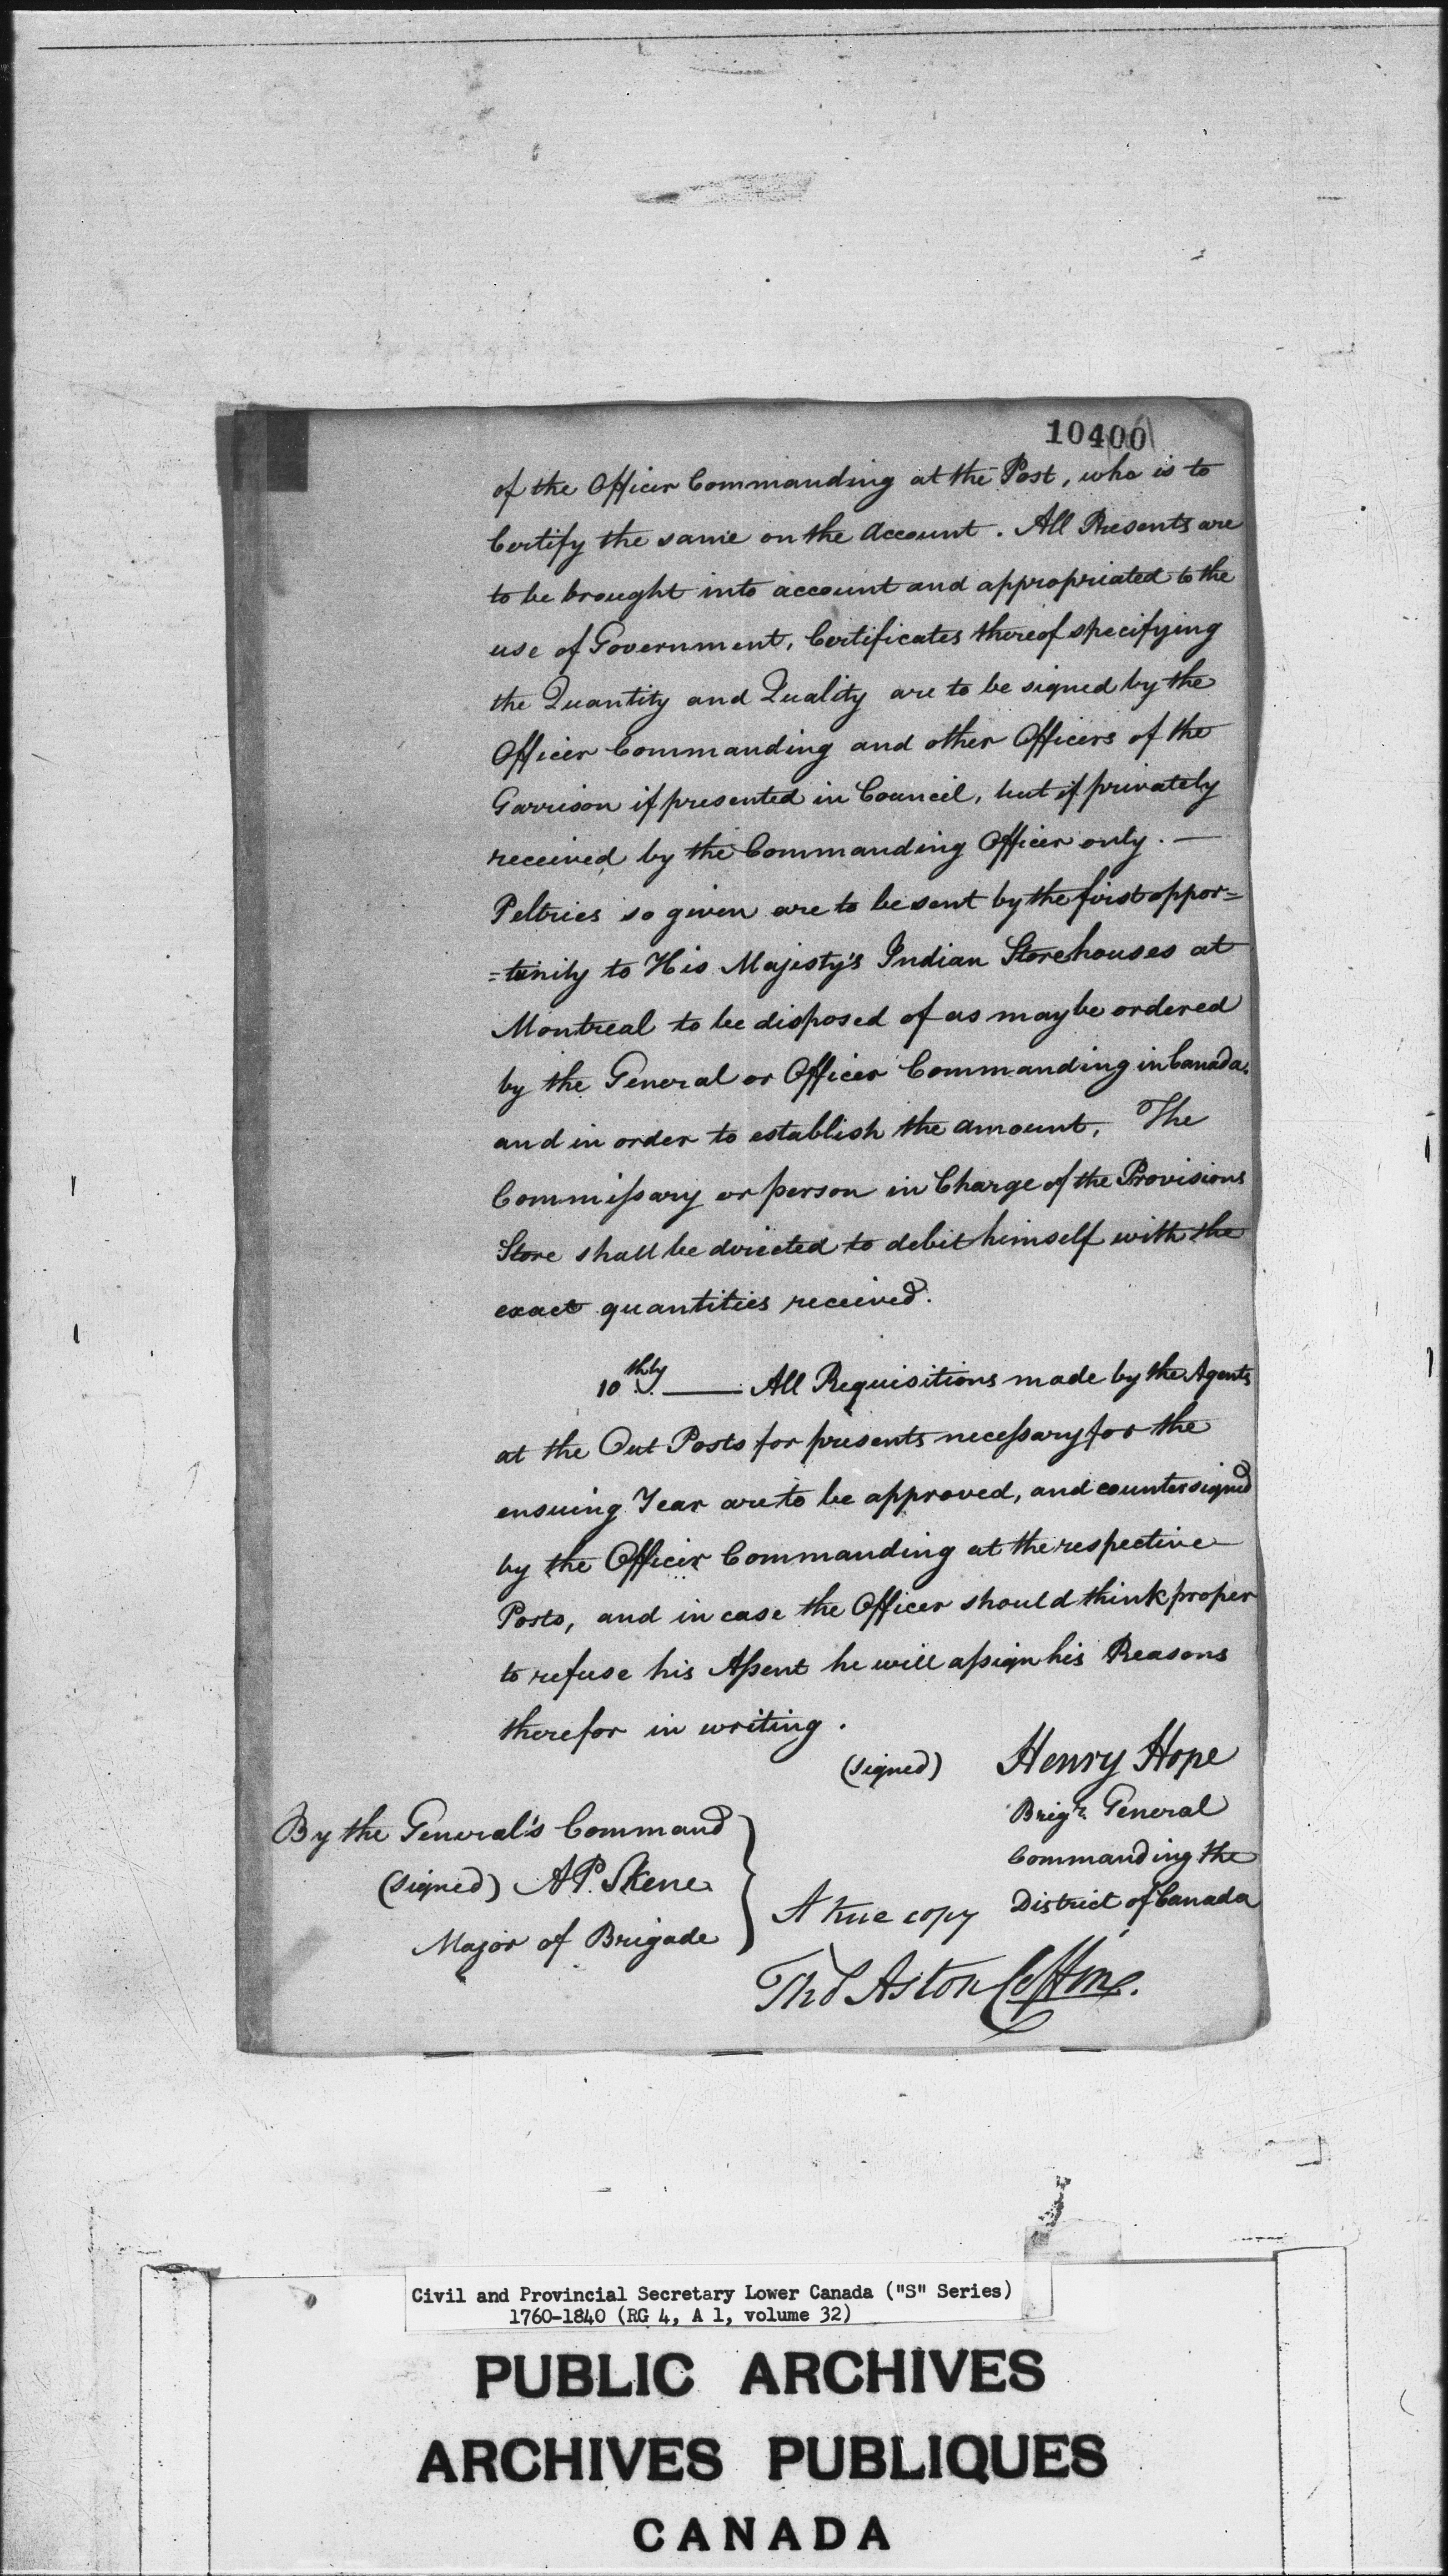 10400
of the Officer Commanding at the Post, who is to
Certify the same on the Account. All Presents are
to be brought into account and appropriated to the
use of Government, Certificates thereof specifying
the Quantity and Quality are to be signed by the
Officer Commanding and other Officers of the
Garrison if presented in Council, but if privately
received by the Commanding Officer only. —
Peltries so given are to be sent by the first oppor=
=tunity to His Majesty's Indian Storehouses at
Montreal to be disposed of as may be ordered
by the General or Officer Commanding in Canada.
and in order to establish the amount, The
Commissary or person in Charge of the Provisions
Store shall be directed to debit himself with the
exact quantities received.
10thly — All Requisitions made by the Agents
at the Out Posts for presents necessary for the
ensuing Year are to be approved, and countersigned
by the Officer Commanding at the respective
Posts, and in case the Officer should think proper
to refuse his Assent he will assign his Reasons
therefor in writing.
(signed) Henry Hope
Brigr. General
Commanding the
District of Canada
By the General's Command
(signed) A.P. Skene
Major of Brigade
A true copy
Thos Aston Coffin.
Civil and Provincial Secretary Lower Canada ("S" Series)
1760-1840 (RG 4, A 1, volume 32)
PUBLIC ARCHIVES
ARCHIVES PUBLIQUES
CANADA